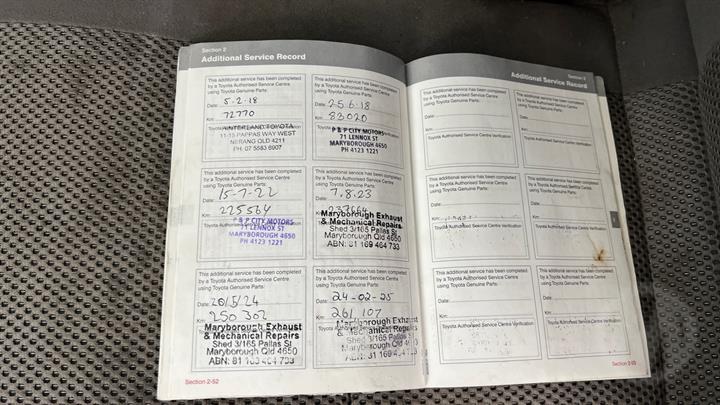 Section 2
Additional Service Record
This additional service has been completed
by a Toyota Authorised Service Centre
using Toyota Genuine Parts:
Date: 5-2-18
Km: 72770
HINTERLAND TOYOTA
11-15 PAPPAS WAY WEST
NERANG QLD 4211
PH: 07 5583 6907
This additional service has been completed
by a Toyota Authorised Service Centre
using Toyota Genuine Parts:
Date: 25-6-18
Km: 83020
P & P CITY MOTORS
71 LENNOX ST
MARYBOROUGH 4650
PH 4123 1221
This additional service has been completed
by a Toyota Authorised Service Centre
using Toyota Genuine Parts:
Date: 15-7-22
Km: 225564
Toyota Authorised
P & P CITY MOTORS
71 LENNOX ST
MARYBOROUGH 4650
PH 4123 1221
This additional service has been completed
by a Toyota Authorised Service Centre
using Toyota Genuine Parts:
Date: 7.8.23
Maryborough Exhaust
& Mechanical Repairs
Shed 3/165 Pallas St
Maryborough Qld 4650
ABN: 81 169 464 733
This additional service has been completed
by a Toyota Authorised Service Centre
using Toyota Genuine Parts:
Date: 20/5/24
Km: 250 302
Maryborough Exhaust
& Mechanical Repairs
Shed 3/165 Pallas St
Maryborough Qld 4650
ABN: 81
This additional service has been completed
by a Toyota Authorised Service Centre
using Toyota Genuine Parts:
Date: 24-02-25
Km: 261,107
Maryborough Exhaust
& Mechanical Repairs
Shed 3/165 Pallas St
Maryborough Qld
Section 2-52
Section 2
Additional Service Record
This additional service has been completed
by a Toyota Authorised Service Centre
using Toyota Genuine Parts:
Date:
Km:
Toyota Authorised Service Centre Verification
This additional service has been completed
by a Toyota Authorised Service Centre
using Toyota Genuine Parts:
Date:
Km:
Toyota Authorised Service Centre Verification
This additional service has been completed
by a Toyota Authorised Service Centre
using Toyota Genuine Parts:
Date:
Km:
Toyota Authorised Service Centre Verification
This additional service has been completed
by a Toyota Authorised Service Centre
using Toyota Genuine Parts:
Date:
Km:
Toyota Authorised Service Centre Verification
This additional service has been completed
by a Toyota Authorised Service Centre
using Toyota Genuine Parts:
Date:
Km:
Toyota Authorised Service Centre Verification
This additional service has been completed
by a Toyota Authorised Service Centre
using Toyota Genuine Parts:
Date:
Km:
Toyota Authorised Service Centre Verification
Section 2-53